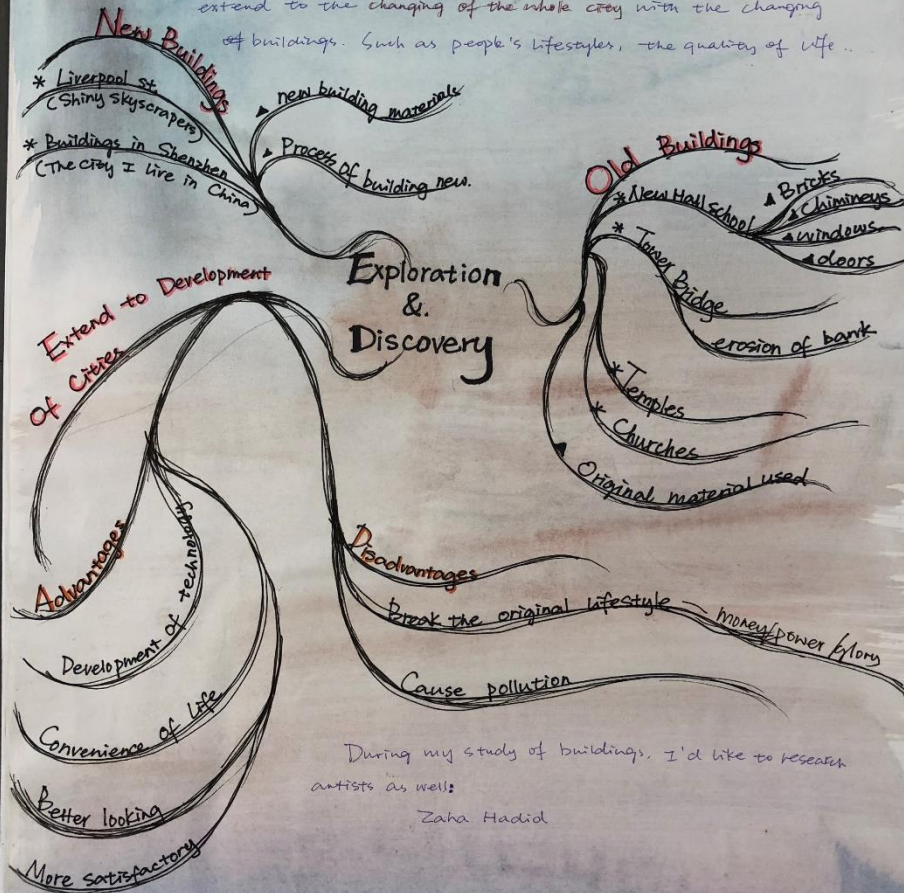 extend to the changing of the whole city with the changing
of buildings. Such as people's lifestyles, the quality of life..
New Buildings
* Liverpool st.
(Shiny Skyscrapers)
* Buildings in Shenzhen
(The city I live in China)
new building materials
Process of building new.
Exploration
&.
Discovery
Old Buildings
* New Hall school
Bricks
Chimineys
windows
doors
* Tower Bridge
erosion of bank
* Temples
* Churches
Original material used
Extend to Development
Of Cities
Advantages
Development of technology
Convenience of life
Better looking
More satisfactory
Disadvantages
Break the original lifestyle
money/power/glory
Cause pollution
During my study of buildings, I'd like to research
artists as well:
Zaha Hadid